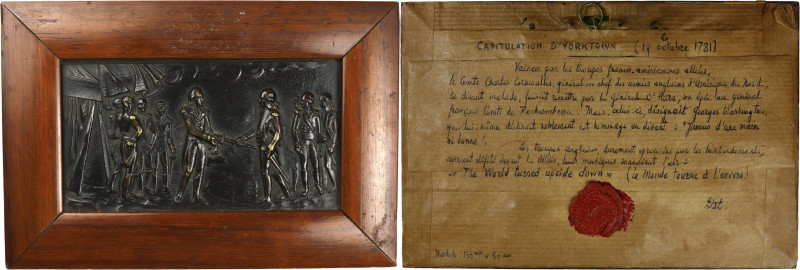 CAPITULATION D'YORKTOWN (19 octobre 1781)
Vaincu par les troupes franco-américaines alliées,
le Comte Charles Cornwallis, général en chef des armées anglaises d'Amérique du Nord,
se disant malade, faisait remettre par le général O'Hara, son épée au général
français Comte de Rochambeau. Mais, celui-ci désignait Georges Washington,
qui lui-même déclinait cet hommage en disant : "Jamais d'une main
si bonne".
Les troupes anglaises, durement éprouvées par les bombardements,
avaient défilé devant les alliés, leurs musiques l'air :
"The World turned upside down" (le Monde tourne à l'envers)